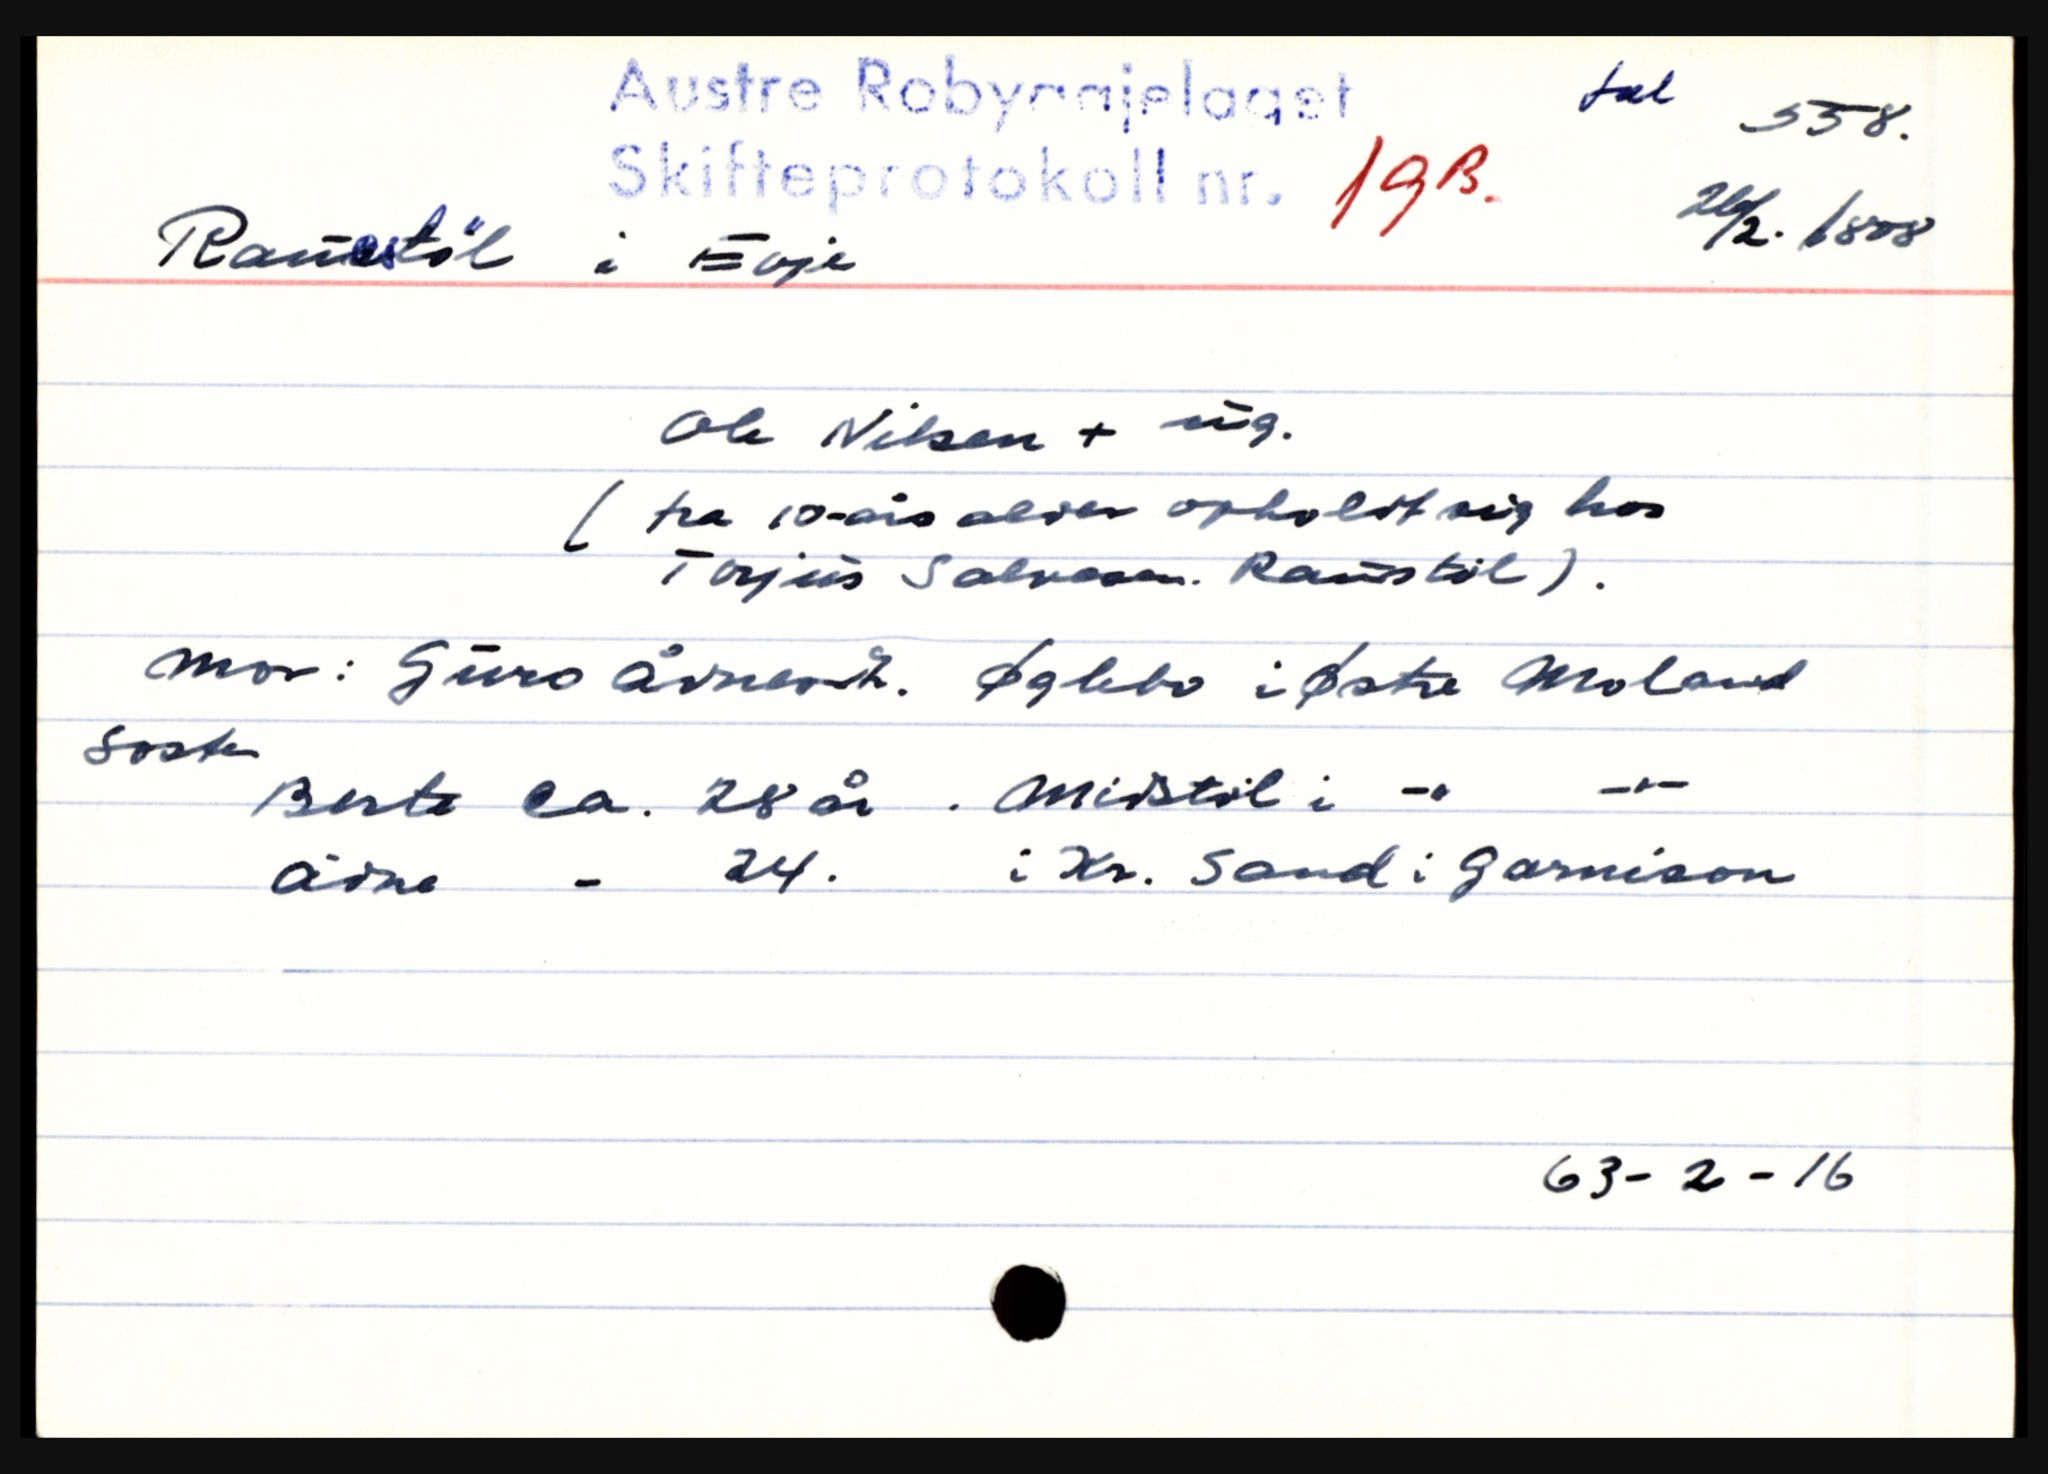 Austre Robyggjelaget
Skifteprotokoll nr. 19B.
fol 558.
26/2. 1808
Raustöl i Evje
Ole Nilsen + ug.
( fra 10-års alder opholdt sig hos
Torjus Salvesen. Raustöl ).
Mor: Guro Ådnesd. Øglebo i Østre Moland
Søsk
Berte ca. 28 år . Midstöl i -" -"-
Ådne - 24. i Kr. Sand i Garnison
63-2-16